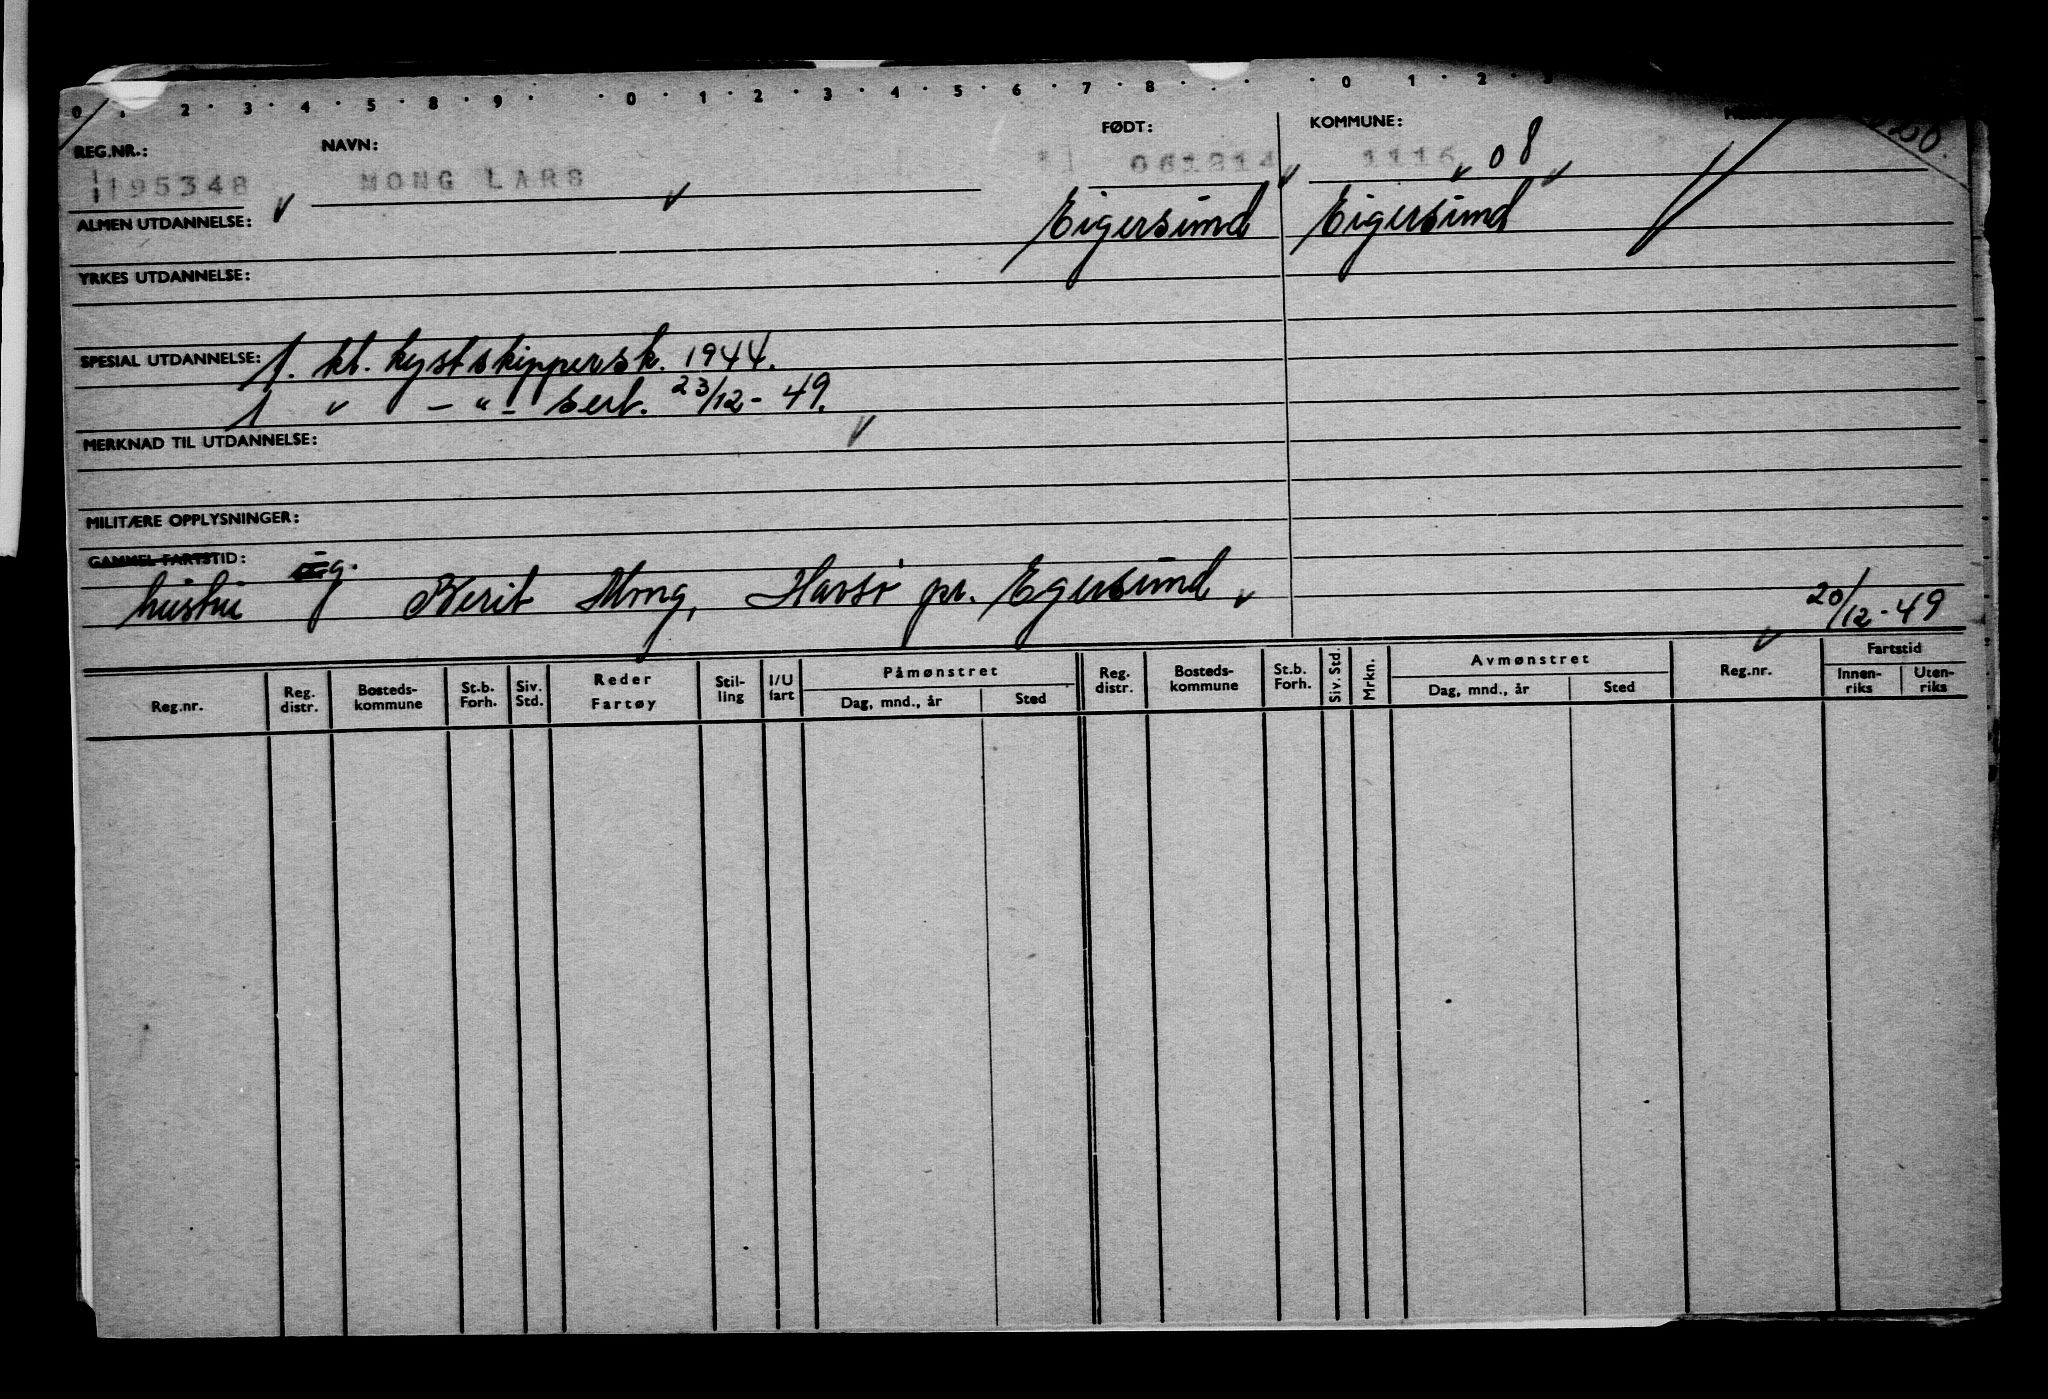 0 . 2 · 3 · 4 · 5 · 8 · 9 · · 0 · 1 · 2 · 3 · 4 · 5 · 6 · 7 · 8 · · · 0 · 1 · 2 · 3
REG.NR.: NAVN: FØDT: KOMMUNE:
195348 MONG LARS 061214 1116 08
ALMEN UTDANNELSE: Eigersund Eigersund
YRKES UTDANNELSE:
SPESIAL UTDANNELSE: 1. kl. kystskippersk. 1944.
1 " — " — sert. 23/12 - 49.
MERKNAD TIL UTDANNELSE:
MILITÆRE OPPLYSNINGER:
GAMMEL FARTSTID:
hustru g. Berit Mong, Havsø pr. Egersund 20/12 - 49
Reg.nr. Reg. distr. Bosteds- kommune St.b. Forh. Siv. Std. Reder Fartøy Stil- ling I/U fart Påmønstret Dag, mnd., år Sted Reg. distr. Bosteds- kommune St.b. Forh. Siv. Std. Mrkn. Avmønstret Dag, mnd., år Sted Reg.nr. Fartstid Innen- riks Uten- riks